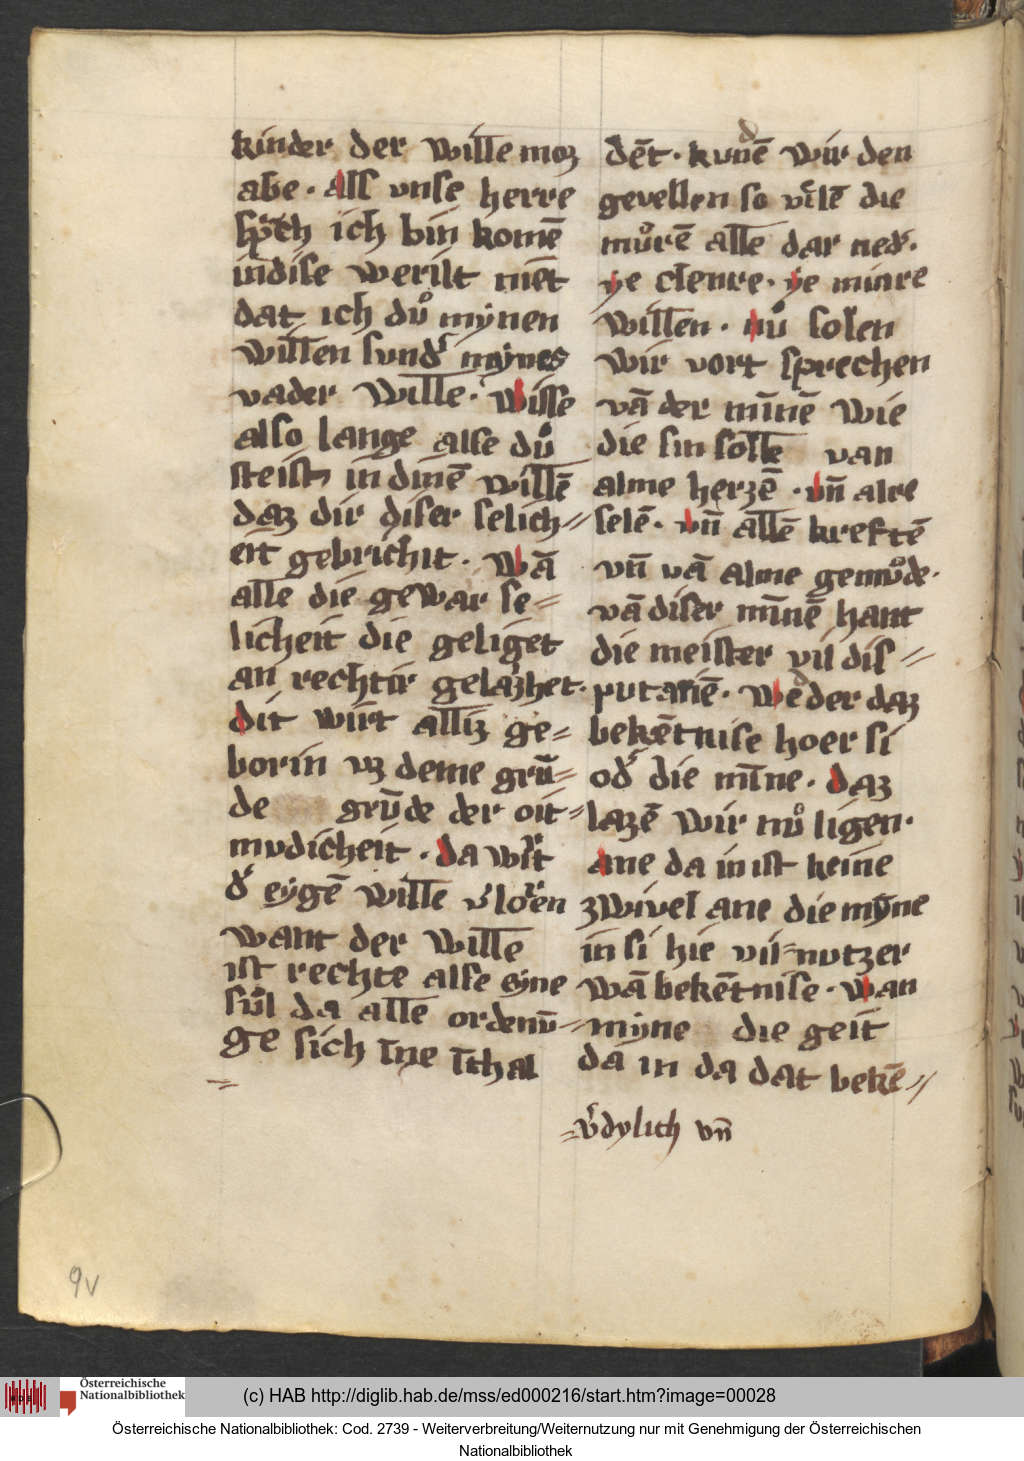 kinder der wille moz
abe · alſ vnse herre
sp͛ch ich bin komē
indise werilt niēt
dat ich duͦ mÿnen
willen sund͛ mÿnes
vader wille · wisse
also lange alse duͦ
steist in dinē willē
daz dir diser selich⸗
eit gebrichit · wā
alle die gewar se⸗
licheit die geliget
an rechtir gelazhet·
dit wirt alliz ge⸗
borin vz deme grū⸗
de grūde der oit⸗
mudicheit · da wirt
d͛ eÿgē wille v͛loren
want der wille
ist rechte alse eyne
sul da alle ordenū⸗
ge sich īne īthal
⸗
dēt · kundē wir den
gevellen so vilē die
muͦrē alle dar ned͛·
ye clenre · ye minre
willen · nuͦ solen
wir vort sprechen
vā der mīnē wie
die sin solle van
alme herzē · vn̄ alre
selē · vn̄ allē kreftē
vn̄ vā alme gemuͦde·
vā diser mīnē hant
die meister vil dis⸗
putariē · weder daz
bekētnise hoer si
od͛ die mīne · daz
lazē wir nuͦ ligen·
ane da in ist keine
zwivel ane die mÿne
in si hie vil nutzer
wā bekētnise · wan
mÿne die geit
da in da dat bekē⸗
⸗v͛dylich vn̄
9v
Österreichische
Nationalbibliothek
(c) HAB http://diglib.hab.de/mss/ed000216/start.htm?image=00028
Österreichische Nationalbibliothek: Cod. 2739 - Weiterverbreitung/Weiternutzung nur mit Genehmigung der Österreichischen
Nationalbibliothek